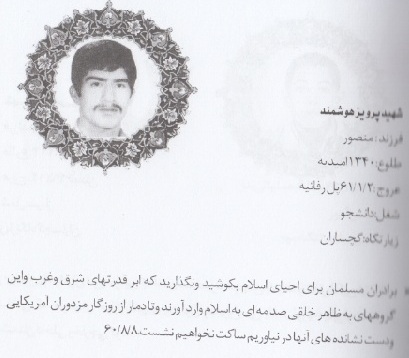 شهید پرویز هوشمند
فرزند: منصور
طلوع: ۱۳۴۰ امیدیه
عروج: ۶۱/۱/۲ پل رفائیه
شغل: دانشجو
زیارتگاه: گچساران
برادران مسلمان برای احیای اسلام بکوشید ونگذارید که ابر قدرتهای شرق وغرب واین
گروههای به ظاهر خلقی صدمه ای به اسلام وارد آورند و تا دمار از روزگار مزدوران آمریکایی
ودست نشانده های آنها در نیاوریم ساکت نخواهیم نشست. ۶۰/۸/۸